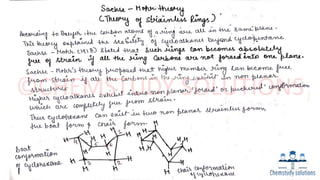 Sachse - Mohr theory
(Theory of Strainless Rings)
According to Baeyer the carbon atoms of a ring are all in the same plane.
This theory explained the stability of cycloalkane beyond cyclopentane
Sachse - Mohr (1918) stated that such rings can becomes absolutely
free of strain if all the ring carbons are not forced into one plane.
Sachse - Mohr's theory proposed that higher member ring can become free
from strain if all the carbons in the ring exist in non planar
structures
Higher cycloalkanes exhibit into a non planar "folded" or puckered" conformation
which are completely free from strain.
Thus cyclohexane can exist in two non planar strainless forms
the boat form & chair form
boat
conformation
of cyclohexane
H H H H H H H H H H H H
1 2 3 4
H H H H H H H H H H H H
chair conformation
of cyclohexane
Chemstudy solutions